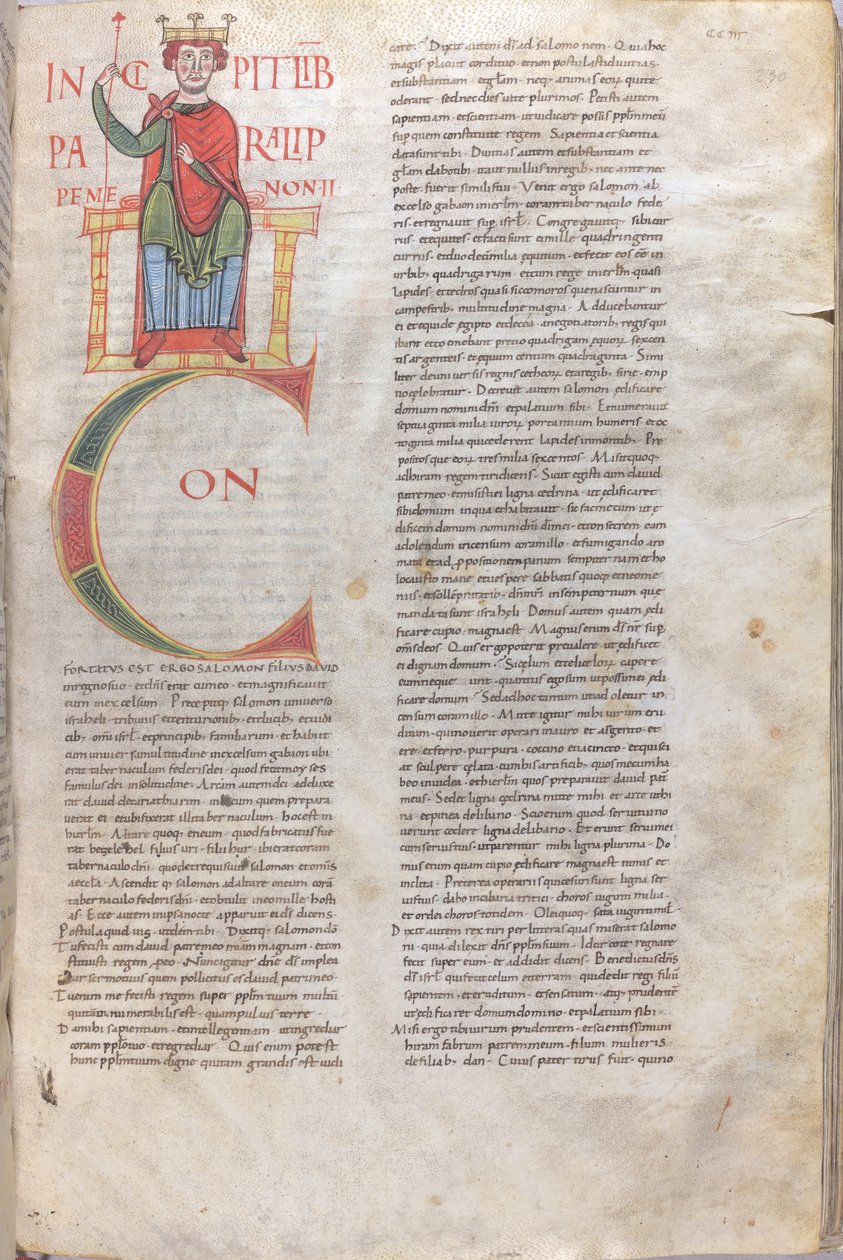 INCIPIT LIB
PARALIP
PEMENON II
CON
FORTATUS EST ERGO SALOMON FILIUS DAVID
in regno suo · et dns erat cum eo · et magnificavit
eum in excelsum · Precepitq; salomon universo
israheli · tribunis et centurionib; et ducib; et iudi
cib; omis isrl · et principib; familiarum · et habiit
cum universa multitudine in excelsum gabaon ubi
erat tabernaculum federis dei · quod fecit moyses
famulus dei in solitudine · Arcam autem dei adduxe
rat david de cariathiarim · in locum quem prepara
verat ei · et ubi fixerat illi tabernaculum · hoc est in
hierlm · Altare quoq; eneum · quod fabricatus fue
rat beselehel filius uri · filii hur · ibi erat coram
tabernaculo dni · quod et requisivit salomon et omis
aeccla · Ascenditq; salomon ad altare eneum corā
tabernaculo federis dni · et obtulit in eo mille hosti
as · Ecce autem in ipsa nocte apparuit ei ds dicens ·
Postula quid vis · ut dem tibi · Dixitq; salomon dō
Tu fecisti cum david patre meo miam magnam · et con
stituisti regem me p eo · Nunc igitur dne ds implea
tur sermo tuus quem pollicitus es david patri meo ·
Tu enim me fecisti regem super pplm tuum multū
qui tam innumerabilis est · quam pulvis terre ·
Da mihi sapientiam · et intellegentiam · ut ingrediar
coram pplo tuo · et regrediar · Quis enim potest
hunc pplm tuum digne qui tam grandis est iudi
CC III
230
care · Dixit autem ds ad salomonem · Quia hoc
magis placuit cordi tuo · et non postulasti divitias ·
et substantiam · et glam · neq; animas eorum qui te
oderant · sed nec dies vite plurimos · Petisti autem
sapientiam · et scientiam · ut iudicare possis pplm meū
sup quem constitui te regem · Sapientia et scientia
data sunt tibi · Divitias autem et substantiam et
glam dabo tibi · ita ut nullus in regib; nec ante nec
post te fuerit similis tui · Venit ergo salomon ab
excelso gabaon in ierlm · coram tabernaculo fede
ris · et regnavit sup isrl · Congregavitq; sibi cur
rus · et equites · et facti sunt ei mille quadringenti
currus · et duodeci milia equitum · et fecit eos ēē in
urbib; quadrigarum · et cum rege in ierlm · quasi
lapides · et cedros quasi siccomoros que nascuntur in
campestrib; multitudine magna · Adducebantur
ei et eque de egipto et de coa · a negotiatorib; regis qui
ibant et coemebant precio quadrigam equorum sexcen
tis argenteis · et equum centum quadraginta · Simi
liter de universis regnis cetheorum et a regib; sirie · emp
tio celebratur · Decrevit autem salomon edificare
domum nomini dni · et palatium sibi · Et numeravit
septuaginta milia virorum portantium humeris · et oc
toginta milia qui cederent lapides in montib; Pre
positosque eorum tres milia sexcentos · Misit quoq;
ad hiram regem tiri dicens · Sicut egisti cum david
patre meo · et misisti ei ligna cedrina · ut edificaret
sibi domum in qua et habitavit · sic fac mecum ut e
dificem domum nomini dni di mei · et consecrem eam
adolendum incensum coram illo · et fumiganda aro
mata et ad ppositionem panum sempiternam et ho
locausto mane et vespere · sabbatis quoq; et neome
niis · et sollempnitatib; dni nri in sempiternum que
mandata sunt israheli · Domus autem quam edi
ficare cupio · magna est · Magnus enim ds nr sup
oms deos · Quis ergo poterit prevalere ut edificet
ei dignam domum · Si celum et celi celorum capere
eum nequeunt · quantus ego sum ut possim ei edi
ficare domum · Sed ad hoc tantum ut adoletur in
censum coram illo · Mitte igitur mihi virum eru
ditum · qui noverit operari in auro et argento · et
ere · et ferro · purpura · coccino et iacincto · et qui sci
at sculpere celata · cum his artificib; quos mecum ha
beo in iudea · et hierlm quos preparavit david pat
meus · Sed et ligna cedrina mitte mihi et arceuthi
na · et pinea de libano · Scio enim quod servi tui no
verunt cedere ligna de libano · Et erunt servi mei
cum servis tuis · ut parentur mihi ligna plurima · Do
mus enim quam cupio edificare magna est nimis et
inclita · Preterea operariis qui cesuri sunt ligna ser
vis tuis · dabo in cibaria tritici · choros viginti milia ·
et ordei choros totidem · Olei quoq; sata viginti mil ·
Dixit autem rex tiri per litteras quas miserat salomo
ni · quia dilexit dns pplm suum · Idcirco te regnare
fecit super eum · et addidit dicens · Benedictus dns
ds isrl · qui fecit celum et terram · qui dedit regi filiū
sapientem · et eruditum · et sensatum · atq; prudentē
ut edificaret domum domino · et palatium sibi ·
Misi ergo tibi virum prudentem · et scientissimum
hiram fabrum patrem meum · filium mulieris
de filiab; dan · Cuius pater tirus fuit · qui no